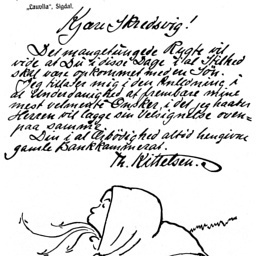 "Lauvlia", Sigdal.
Kjære Skredsvig!
Det mangetungede Rygte vil
vide at Du i disse Dage i al Stilhed
skal være opkommet med en Søn.
Jeg tillater mig i den Anledning i
al Underdanighed at frembære mine
mest velmente Ønsker, i det jeg haaber
Herren vil lægge sin Velsignelse oven-
paa samme.
Din i al Ærbødighed altid hengivne
gamle Bankkammerat.
Th. Kittelsen.